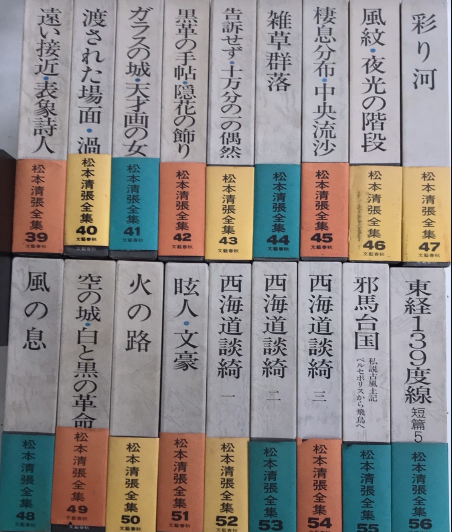 遠い接近・表象詩人
松本清張全集
39
文藝春秋
渡された場面・渦
松本清張全集
40
文藝春秋
ガラスの城・天才画の女
松本清張全集
41
文藝春秋
黒革の手帖・隠花の飾り
松本清張全集
42
文藝春秋
告訴せず・十万分の一の偶然
松本清張全集
43
文藝春秋
雑草群落
松本清張全集
44
文藝春秋
棲息分布・中央流沙
松本清張全集
45
文藝春秋
風紋・夜光の階段
松本清張全集
46
文藝春秋
彩り河
松本清張全集
47
文藝春秋
風の息
松本清張全集
48
空の城・白と黒の革命
松本清張全集
49
文藝春秋
火の路
松本清張全集
50
文藝春秋
眩人・文豪
松本清張全集
51
文藝春秋
西海道談綺 一
松本清張全集
52
文藝春秋
西海道談綺 二
松本清張全集
53
西海道談綺 三
松本清張全集
54
邪馬台国
私説古風土記
ペルセポリスから飛鳥へ
松本清張全集
55
東経139度線
短篇5
松本清張全集
56